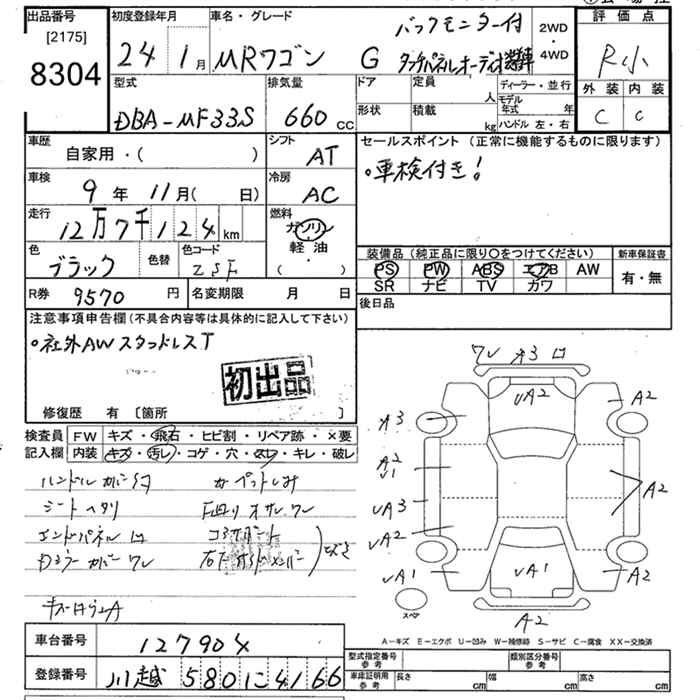 出品番号
[2175]
8304
初度登録年月
24 1月
車名・グレード
MRワゴン G
バックモニター付
タッチパネルオーディオ装着車
2WD
・
4WD
評価点
R小
外装 内装
C C
型式
DBA-MF33S
排気量
660 cc
ドア
定員
人
形状
積載
kg
ディーラー・並行
モデル年式 年
ハンドル 左・右
車歴
自家用・( )
シフト
AT
車検
9年 11月( 日)
冷房
AC
走行
12万7千124 km
燃料
ガソリン
軽油
( ・ )
色
ブラック
色替
色コード
ZSF
R券
9570 円
名変期限 月 日
セールスポイント (正常に機能するものに限ります)
。車検付き!
装備品 (純正品に限り○をつけてください)
PS PW ABS エアB AW
SR ナビ TV カワ
新車保証書
有・無
後日品
注意事項申告欄(不具合内容等は具体的に記入して下さい)
。社外AW スタッドレスT
初出品
修復歴 有 [箇所 ]
検査員
記入欄
FW キズ・飛石・ヒビ割・リペア跡・×要
内装 キズ・汚レ・コゲ・穴・スレ・キレ・破レ
ハンドル カバー
シートヘタリ
エンドパネル
カバー ワレ
ワレ
A2
A3
A2
A2
V1
UA3
UA2
UA1
UA2
A2
UA1
A2
A2
スペア
A-キズ E-エクボ U-凹み W-補修跡 S-サビ C-腐食 XX-交換済
車台番号
127904
登録番号
川越 580 に 4166
型式指定番号
参考
類別区分番号
参考
車庫証明用
参考
長さ cm
幅 cm
高さ cm